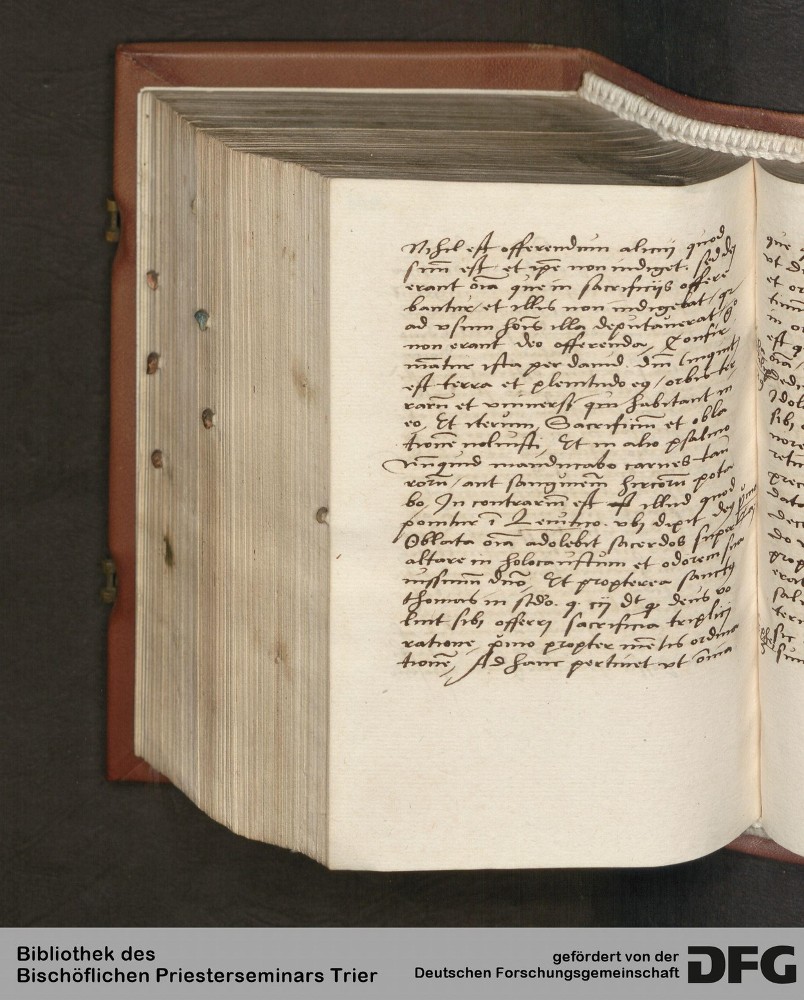 Nihil est offerendum alicui quod
suũ est et ip̃e non indiget. sed dei
erant oĩa que in sacrificijs offere
bantur et illis non indigebat / qꝛ
ad vsum hoĩs illa deputauerat / gͦ
non erant deo offerenda, Confir
matur ista per dauid. dnĩ (inquit)
est terra et plenitudo eꝯ / orbis ter
rarũ et vniuersi qui habitant in
eo, Et iterum, Sacrificiũ et obla
tionẽ noluisti, Et in alio psalmo
Nũnquid manducabo carnes tau
rorũ / aut sanguinem hircorũ pota
bo, In contrariũ est illud quod
ponitur ĩ Leuitico. vbi dixit deꝯ
Oblata oĩa adolebit sacerdos super
altare in holocaustum et odorem sua
uissimum dño, Et propterea sanctꝯ
thomas in scd̃o. q. cij dt ꝙ deus vo
luit sibi offerri sacrificia triplici
ratione, p̃mo propter mẽtis ordina
tionẽ, Ad hanc pertinet vt oĩa
que
vt
et
in
est
oĩa
Idol
sibi
nore
prec
data
dec
prop
erat
sal
sic
Bibliothek des
Bischöflichen Priesterseminars Trier
gefördert von der
Deutschen Forschungsgemeinschaft
DFG